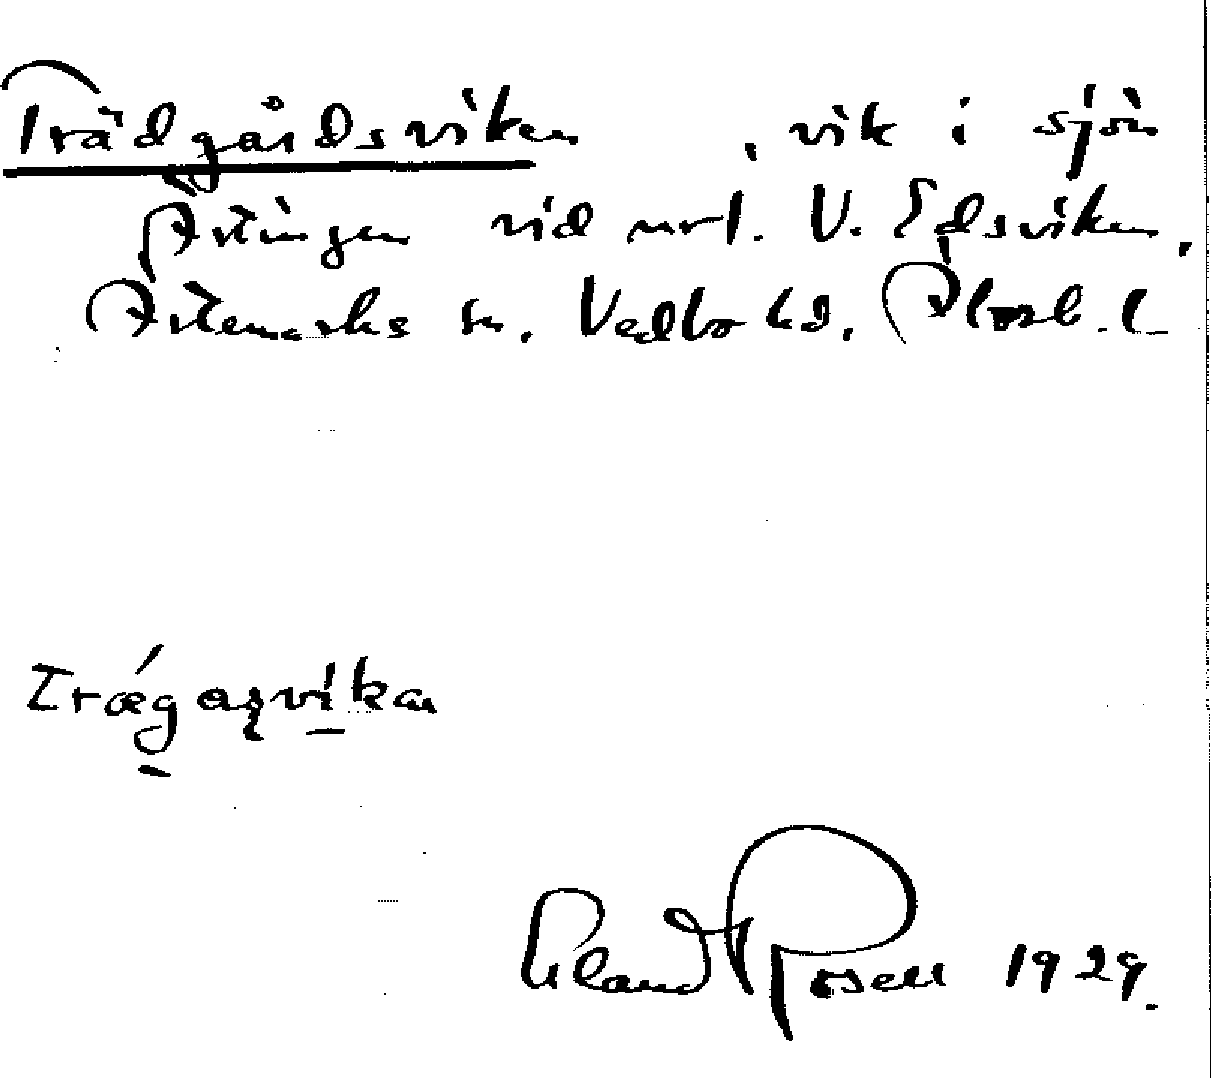 Trädgårdsviken, vik i sjön
Ärtingen vid nrt. V. Edsviken,
Ärtemarks sn. Vedbo hd. Älvsb. l.
Trǽgaʂvi̱kan
Erland Rosell 1929.